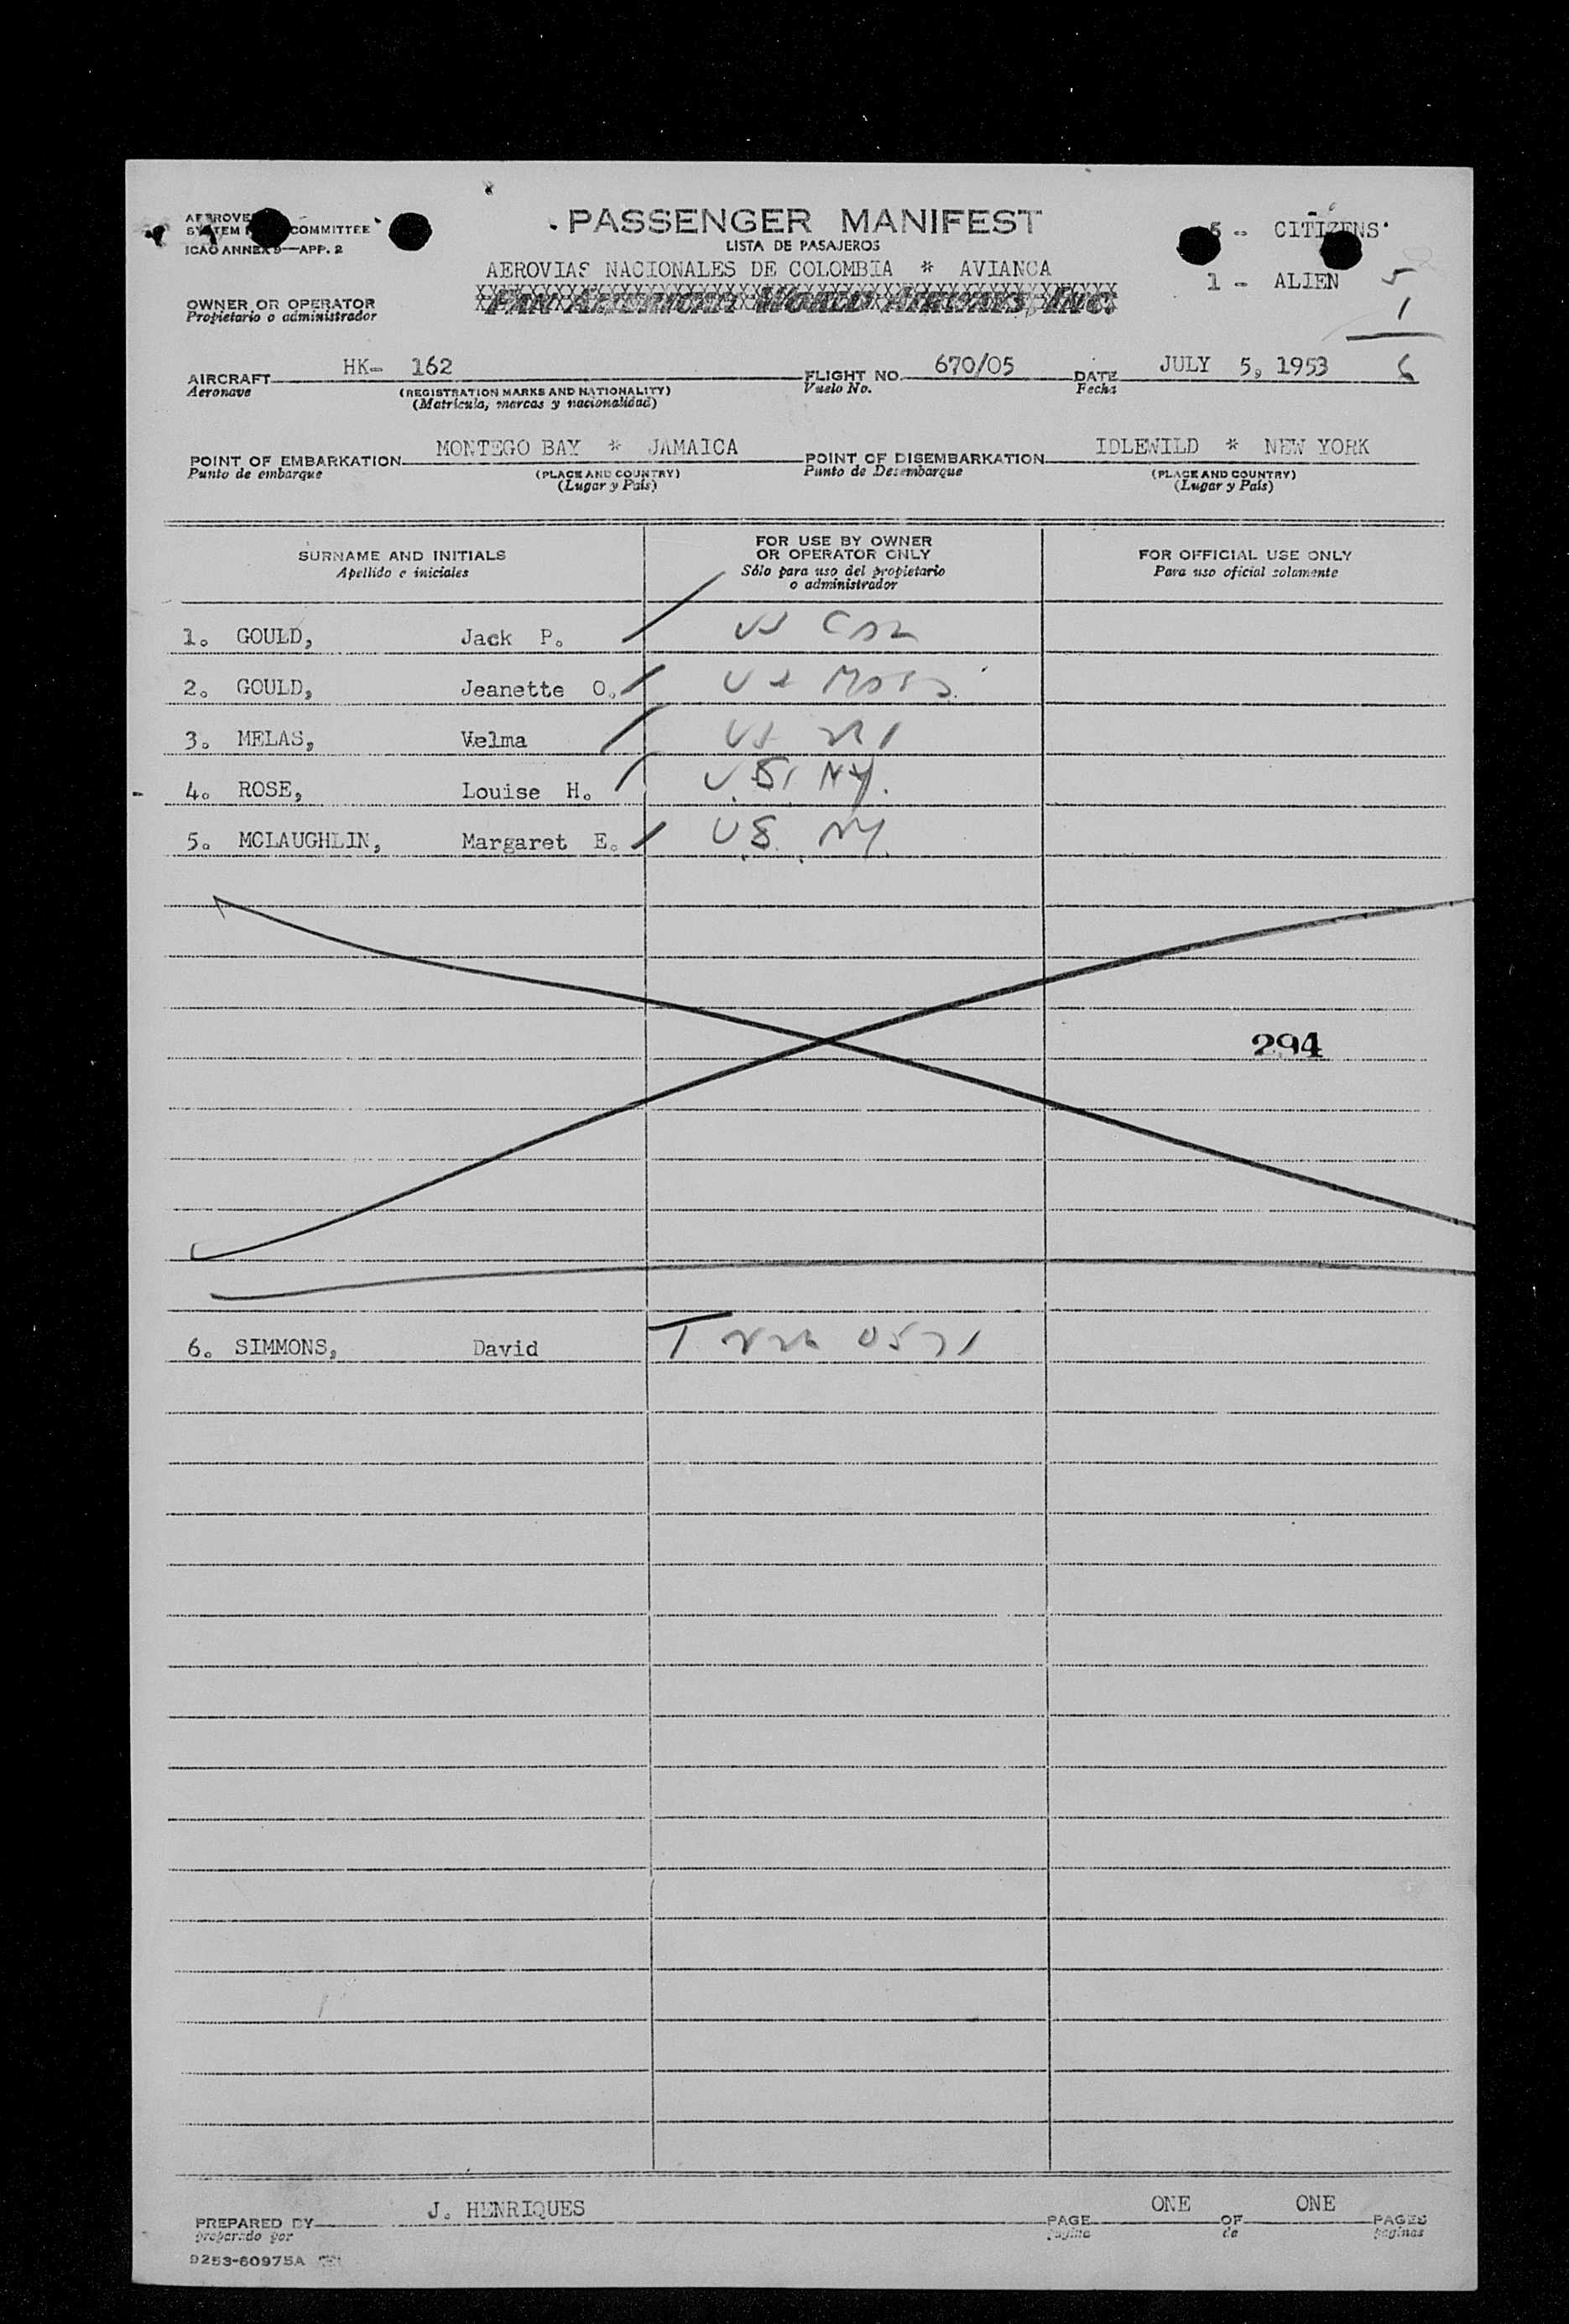 PASSENGER MANIFEST
LISTA DE PASAJEROS
COMMITTEE
ICAO ANNEX 9—APP. 2
5 - CITIZENS
AEROVIAS NACIONALES DE COLOMBIA * AVIANCA
1 - ALIEN 5
PAN AMERICAN WORLD AIRWAYS, INC.
1
OWNER OR OPERATOR
Propietario o administrador
6
AIRCRAFT HK- 162 FLIGHT NO. 670/05 DATE JULY 5, 1953
Aeronave (REGISTRATION MARKS AND NATIONALITY) Vuelo No. Fecha
(Matrícula, marcas y nacionalidad)
POINT OF EMBARKATION MONTEGO BAY * JAMAICA POINT OF DISEMBARKATION IDLEWILD * NEW YORK
Punto de embarque (PLACE AND COUNTRY) Punto de Desembarque (PLACE AND COUNTRY)
(Lugar y País) (Lugar y País)
SURNAME AND INITIALS FOR USE BY OWNER OR OPERATOR ONLY FOR OFFICIAL USE ONLY
Apellido e iniciales Sólo para uso del propietario o administrador Para uso oficial solamente
1. GOULD, Jack P. US
2. GOULD, Jeanette O. US Mass
3. MELAS, Velma US
4. ROSE, Louise H. U.S. NY.
5. MCLAUGHLIN, Margaret E. U.S. NY.
294
6. SIMMONS, David
PREPARED BY J. HENRIQUES PAGE ONE OF ONE PAGES
preparado por página de páginas
9253-60975A